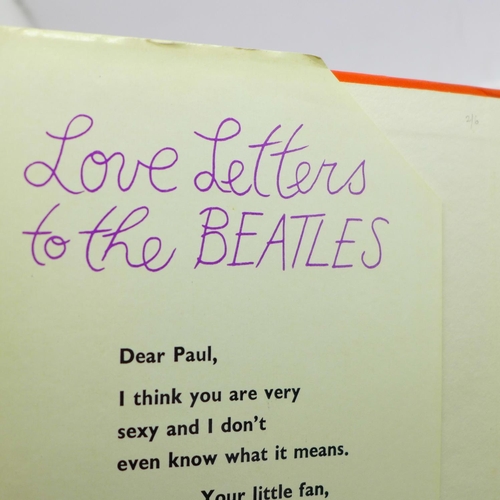 Love Letters
to the BEATLES
Dear Paul,
I think you are very
sexy and I don't
even know what it means.
Your little fan,